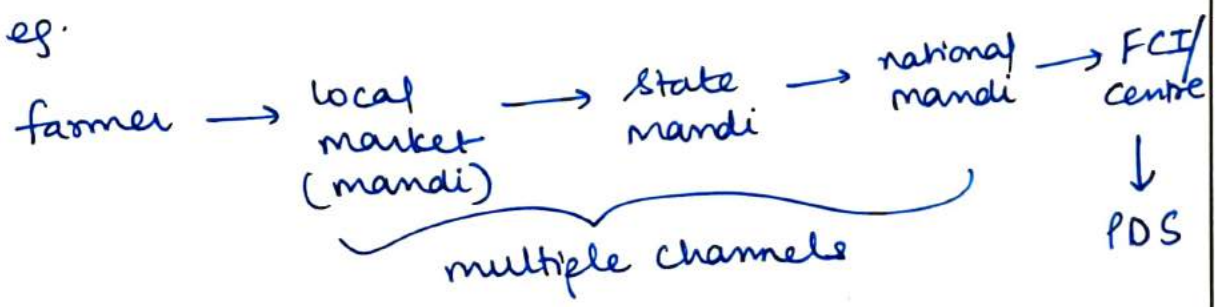 eg.
farmer → local market (mandi) → state mandi → national mandi → FCI/centre
↓
PDS
multiple channels